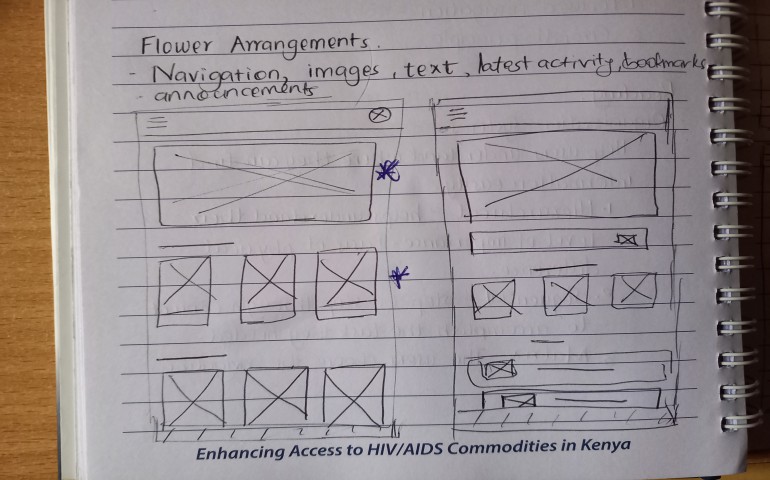 Flower Arrangements.
- Navigation, images, text, latest activity, bookmarks
- announcements
Enhancing Access to HIV/AIDS Commodities in Kenya